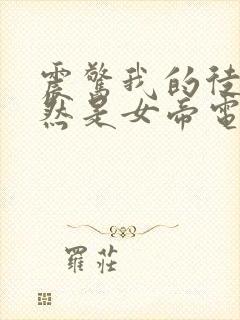 震驚我的徒
然是女帝電
羅莊